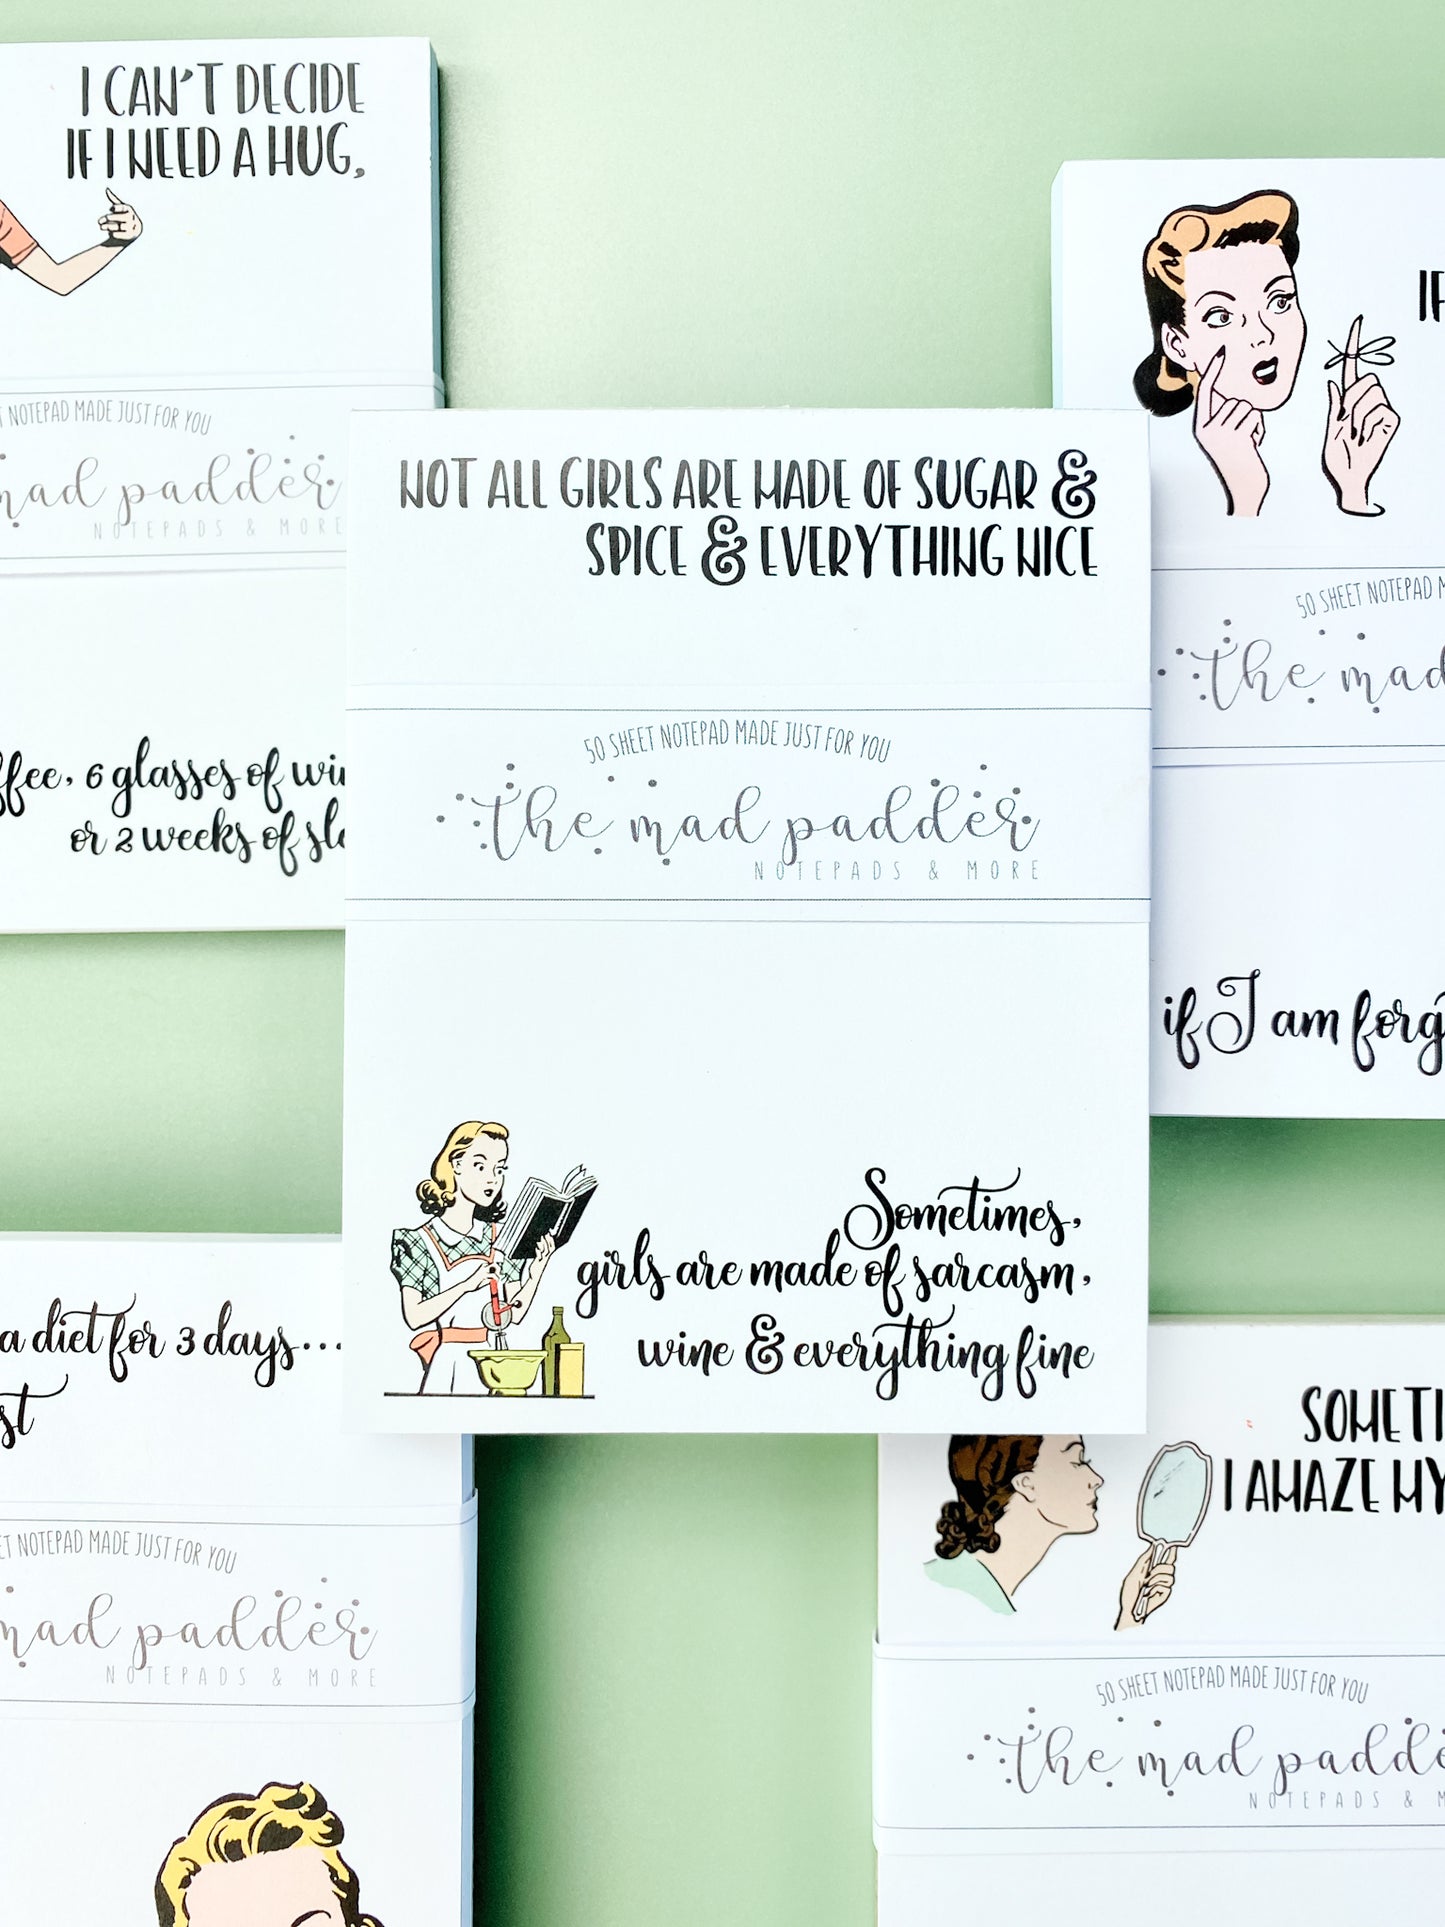 I CAN'T DECIDE
IF I NEED A HUG,
NOTEPAD MADE JUST FOR YOU
mad padder
NOTEPADS & MORE
6 glasses of
or 2 weeks of
NOT ALL GIRLS ARE MADE OF SUGAR &
SPICE & EVERYTHING NICE
50 SHEET NOTEPAD MADE JUST FOR YOU
the mad padder
NOTEPADS & MORE
Sometimes,
girls are made of sarcasm,
wine & everything fine
IF
50 SHEET NOTEPAD
the mad
if I am
a diet for 3 days...
NOTEPAD MADE JUST FOR YOU
mad padder
NOTEPADS & MORE
I AMAZE
50 SHEET NOTEPAD MADE JUST FOR YOU
the mad
NOTEPADS &